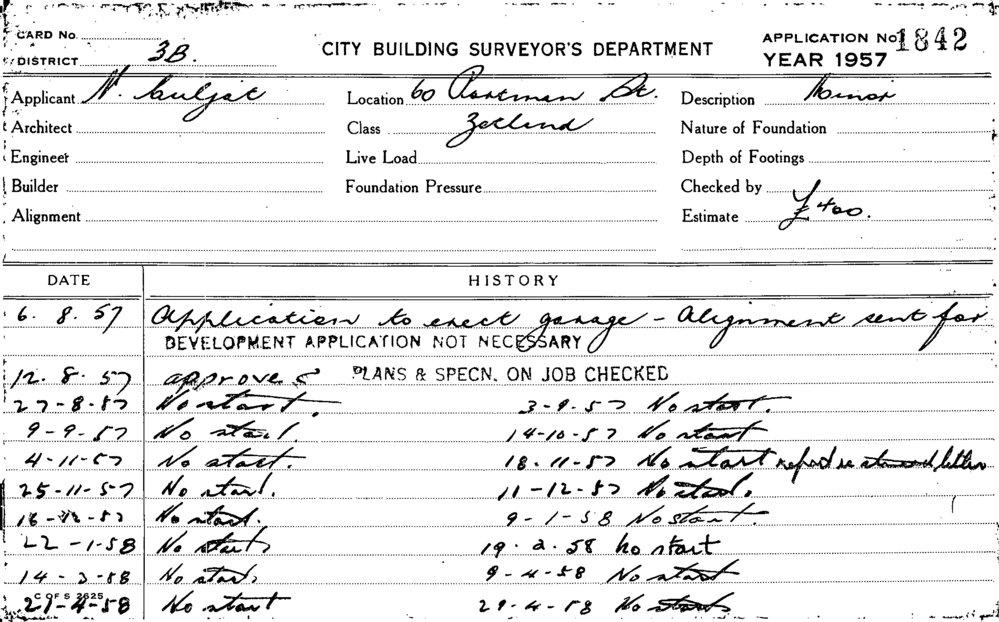 CARD No.
DISTRICT 3B.
CITY BUILDING SURVEYOR'S DEPARTMENT
APPLICATION No 1842
YEAR 1957
Applicant N. Location 60 Portman St. Description Minor
Architect Class Zetland Nature of Foundation
Engineer Live Load Depth of Footings
Builder Foundation Pressure Checked by
Alignment Estimate £400.
DATE HISTORY
6. 8. 57 Application to erect garage - Alignment sent for
DEVELOPMENT APPLICATION NOT NECESSARY
12. 8. 57 approved PLANS & SPECN. ON JOB CHECKED
27-8-57 No start. 3-9-57 No start.
9-9-57 No start. 14-10-57 No start
4-11-57 No start. 18-11-57 No start report re letter
25-11-57 No start. 11-12-57 No start.
16-12-57 No start. 9-1-58 No start.
22-1-58 No start. 19.2.58 No start
14-3-58 No start. 9-4-58 No start
C OF S 2625
21-4-58 No start 29-4-58 No start